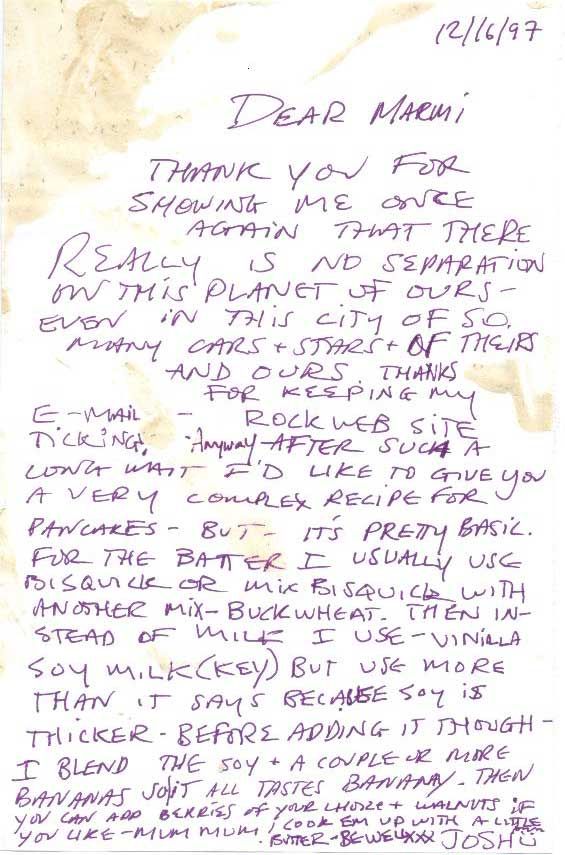 12/16/97
DEAR MARMI
THANK YOU FOR
SHOWING ME ONCE
AGAIN THAT THERE
REALLY IS NO SEPARATION
ON THIS PLANET OF OURS-
EVEN IN THIS CITY OF SO.
MANY CARS + STARS + OF THEIRS
AND OURS THANKS
FOR KEEPING MY
E-MAIL - ROCKWEB SITE
TICKING! Anyway-AFTER SUCH A
LONG WAIT I'D LIKE TO GIVE YOU
A VERY COMPLEX RECIPE FOR
PANCAKES - BUT - IT'S PRETTY BASIC.
FOR THE BATTER I USUALLY USE
BISQUICK OR MIX BISQUICK WITH
ANOTHER MIX-BUCKWHEAT. THEN IN-
STEAD OF MILK I USE-VINILLA
SOY MILK(KEY) BUT USE MORE
THAN IT SAYS BECAUSE SOY IS
THICKER - BEFORE ADDING IT THOUGH-
I BLEND THE SOY + A COUPLE OR MORE
BANANAS SO IT ALL TASTES BANANAY. THEN
YOU CAN ADD BERRIES OF YOUR CHOICE + WALNUTS IF
YOU LIKE-MUM MUM! COOK EM UP WITH A LITTLE
BUTTER-BE WELL XXX JOSHU